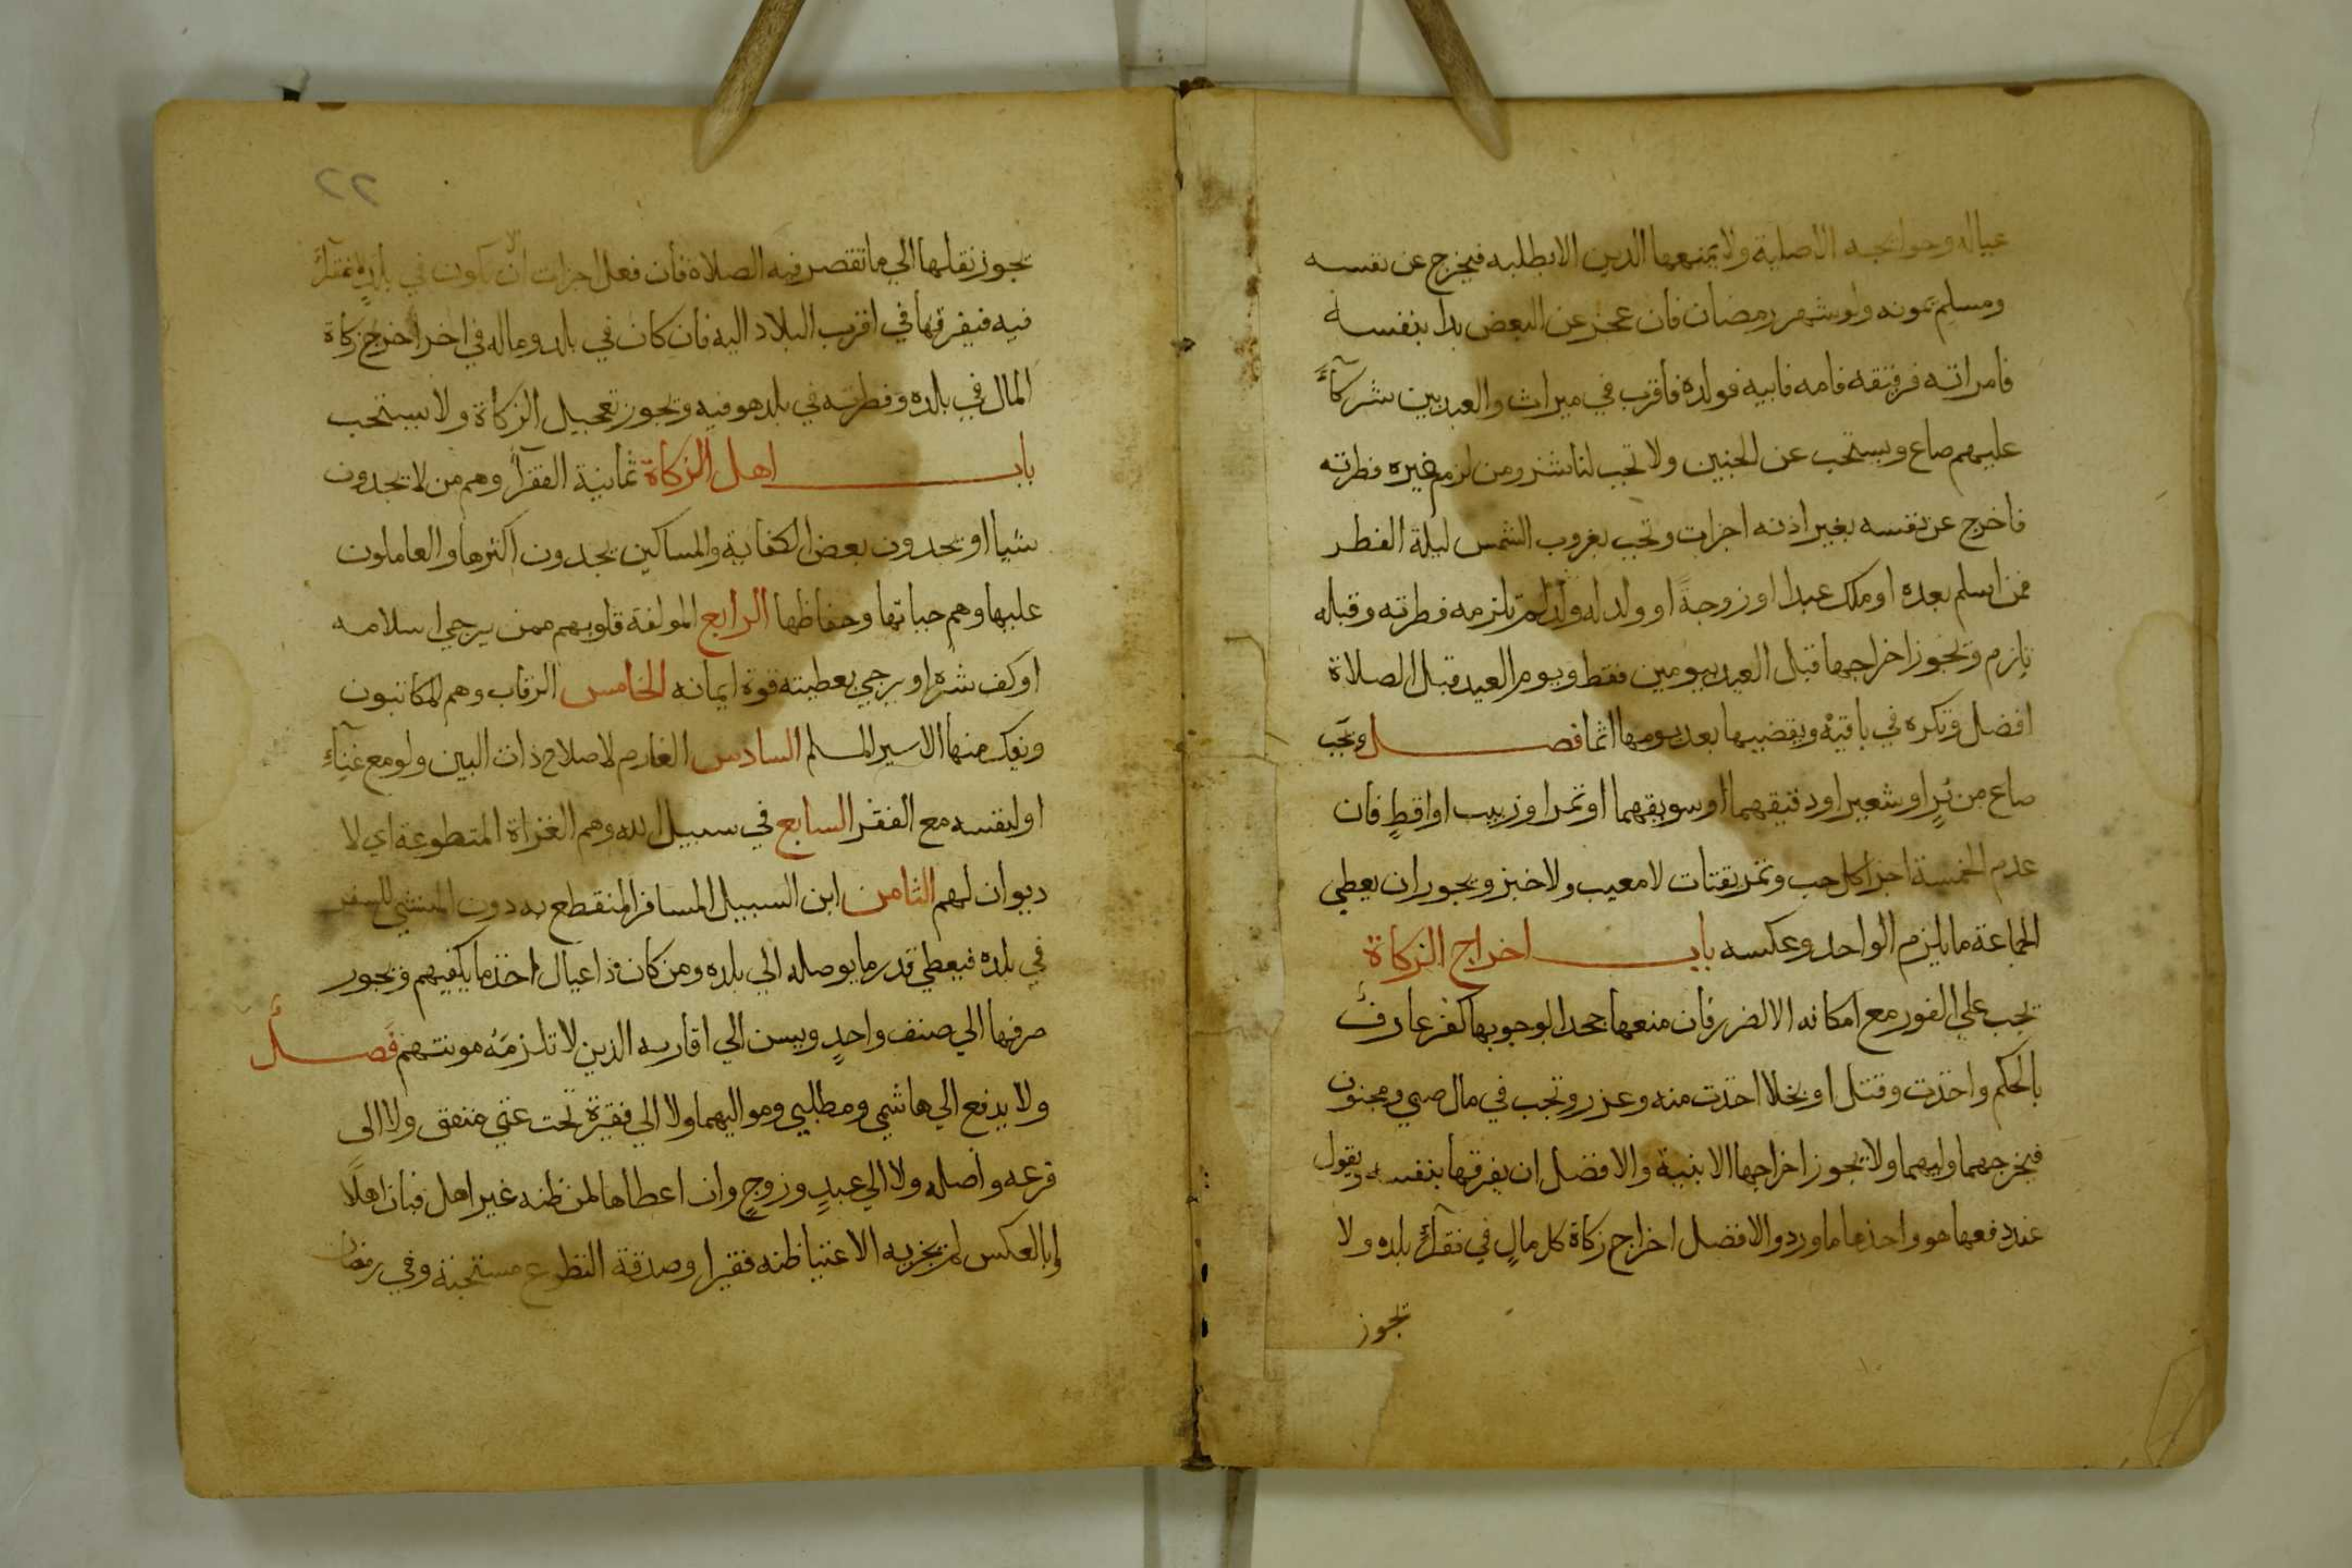 عياله وحوايجه الاصلية ولا يمنعها الدين الا بطلبه فيخرج عن نفسه
ومسلم يمونه ولو شهر رمضان فان عجز عن البعض بدا بنفسه
فامراته فرقيقه فامه فابيه فولده فاقرب في ميراث والعبد بين شركآء
عليهم صاع ويستحب عن الجنين ولا تجب لناشز ومن لزم غيره فطرته
فاخرج عن نفسه بغير اذنه اجزات وتجب بغروب الشمس ليلة الفطر
فمن اسلم بعده او ملك عبدا او زوجة او ولد له ولد لم تلزمه فطرته وقبله
تلزم وتجوز اخراجها قبل العيد بيومين فقط ويوم العيد قبل الصلاة
افضل وتكره في باقيه ويقضيها بعد يومها اثما فصل وتجب
صاع من بُرٍ او شعير او دقيقهما او سويقهما او تمر او زبيب او اقطٍ فان
عدم الخمسة اجزا كل حب وتمر يقتات لا معيب ولا خبز ويجوز ان يعطي
الجماعة ما يلزم الواحد وعكسه باب اخراج الزكاة
تجب علي الفور مع امكانه الا لضرر فان منعها جحدا لوجوبها كفر عارف
بالحكم واخذت وقتل او بخلا اخذت منه وعزر وتجب في مال صبي ومجنون
فيخرجهما وليهما ولا يجوز اخراجها الا بنية والافضل ان يفرقها بنفسه ويقول
عند دفعها هو واخذها ما ورد والافضل اخراج زكاة كل مالٍ في فقرآء بلده ولا
تجوز
٢٢
يجوز نقلها الي ما تقصر فيه الصلاة فان فعل اجزات الا ان يكون في بلدٍ لا فقرآء
فيه فيفرقها في اقرب البلاد اليه فان كان في بلد وماله في اخر اخرج زكاة
المال في بلده وفطرته في بلد هو فيه وتجوز تعجيل الزكاة ولا يستحب
باب اهل الزكاة ثمانية الفقرآء وهم من لا يجدون
شيا او يجدون بعض الكفاية والمساكين يجدون اكثرها والعاملون
عليها وهم جباتها وحفاظها الرابع المولفة قلوبهم ممن يرجي اسلامه
او كف شره او يرجي بعطيته قوة ايمانه الخامس الرقاب وهم المكاتبون
ويفك منها الاسير المسلم السادس الغارم لاصلاح ذات البين ولو مع غنآء
او لنفسه مع الفقر السابع في سبيل الله وهم الغزاة المتطوعة اي لا
ديوان لهم الثامن ابن السبيل المسافر المنقطع به دون المنشي للسفر
في بلده فيعطي قدر ما يوصله الي بلده ومن كان ذا عيال اخذ ما يكفيهم ويجوز
صرفها الي صنف واحدٍ ويسن الي اقاربه الذين لا تلزمه مونتهم فصل
ولا يدفع الي هاشمي ومطلبي ومواليهما ولا الي فقيرة تحت غني منفق ولا الى
فرعه واصله ولا الي عبدٍ وزوجٍ وان اعطاها لمن ظنه غير اهل فبان اهلًا
او بالعكس لم يجزيه الا غنيا ظنه فقيرا وصدقة التطوع مستحبة وفي رمضان